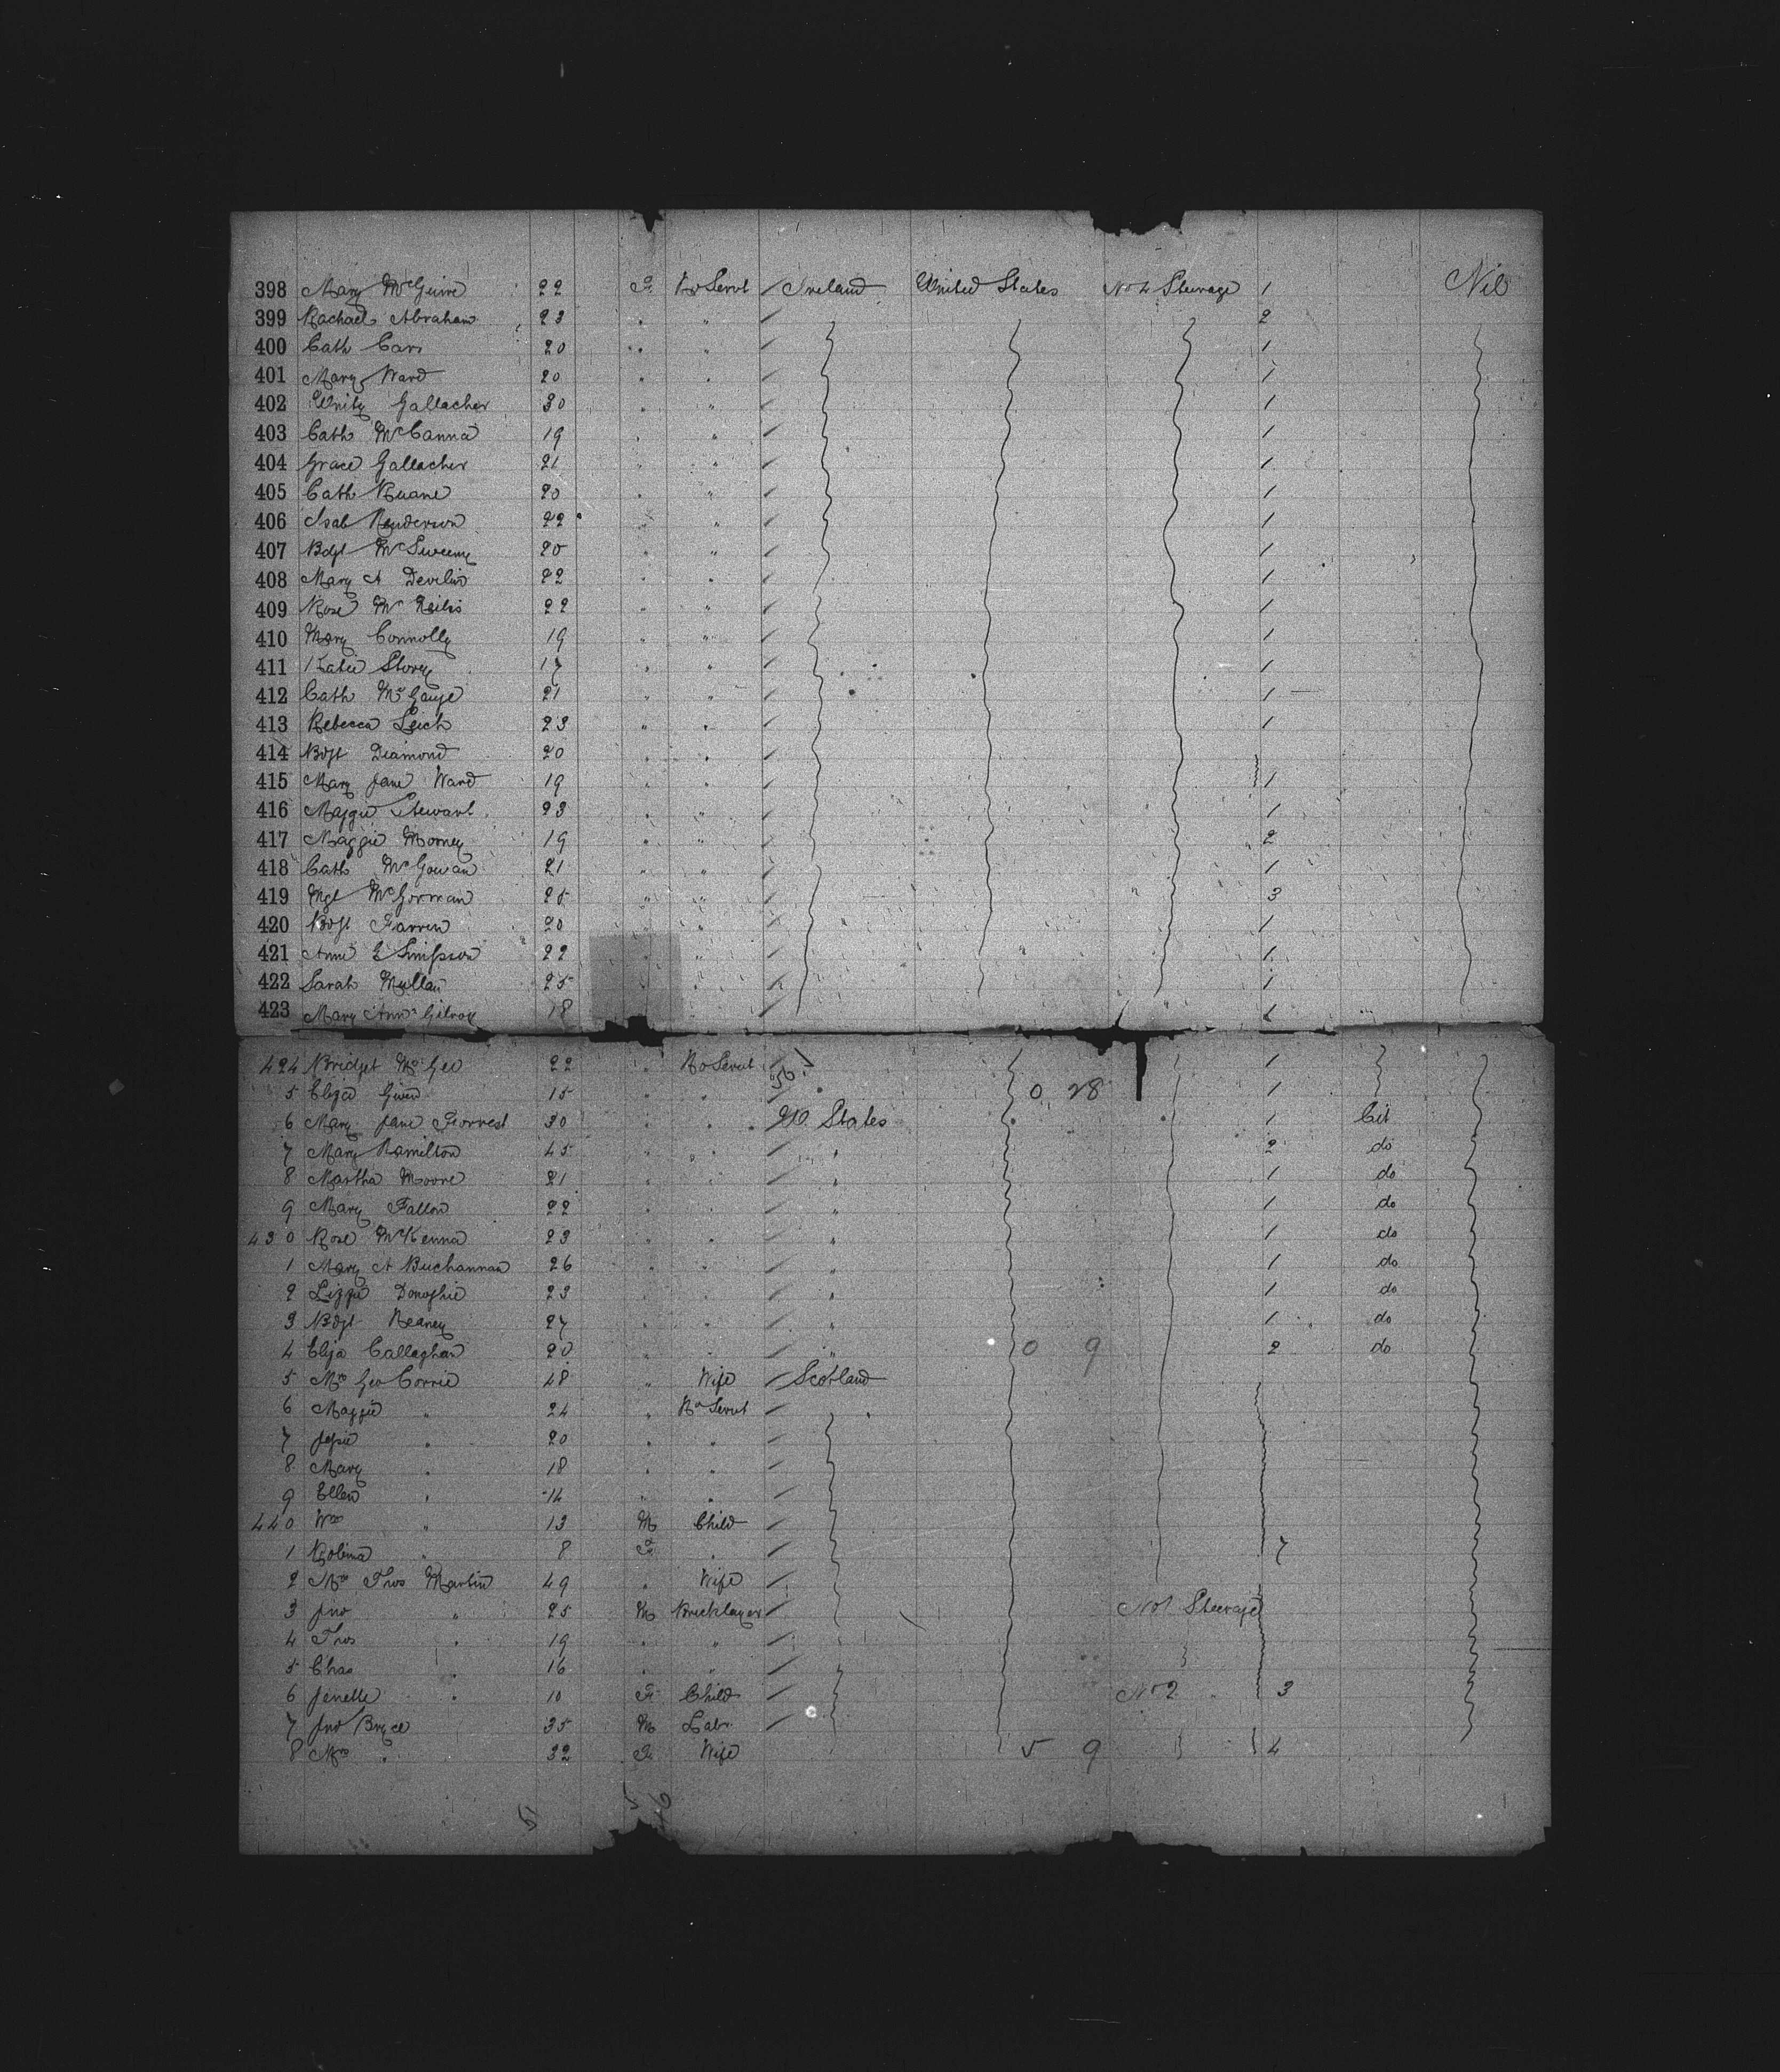 398 Mary McGuire 22 F. Ho Servt / Ireland United States No 4 Steerage 1 Nil
399 Rachael Abraham 23 " " / 2
400 Cath Carr 20 " " / 1
401 Mary Ward 20 " " / 1
402 Unity Gallacher 30 " " / 1
403 Cath McCanna 19 " " / 1
404 Grace Gallacher 21 " " / 1
405 Cath Ruane 20 " " / 1
406 Isab Henderson 22 " " / 1
407 Bdgt McSweeny 20 " " / 1
408 Mary A Devlin 22 " " / 1
409 Rose Mc 22 " " / 1
410 Mary Connolly 19 " " / 1
411 Katie Story 17 " " / 1
412 Cath 21 " " / 1
413 Rebecca Leich 23 " " / 1
414 Bdgt Diamond 20 " " /
415 Mary Jane Ward 19 " " / 1
416 Maggie Stewart 23 " " / 1
417 Maggie Mooney 19 " " / 2
418 Cath McGowan 21 " " / 1
419 Mgt McGorman 25 " " / 3
420 Bdgt Farren 20 " " / 1
421 Annie E Simpson 22 " " / 1
422 Sarah Mullan 25 " " / 1
423 Mary Ann Gilroy 18 " " /
424 Bridget McGeo 22 " Ho Servt / 1
5 Eliza Given 15 " " / 0 28 1
6 Mary Jane Forrest 30 " " U. States 1 Cit
7 Mary Hamilton 45 " " " 2 do
8 Martha Moore 21 " " " 1 do
9 Mary Fallon 22 " " " 1 do
430 Rose McKenna 23 " " " 1 do
1 Mary A Buchannan 26 " " " 1 do
2 Lizzie Donoghie 23 " " " 1 do
3 Bdgt Heaney 27 " " " 1 do
4 Eliza Callaghan 20 " " " 0 9 2 do
5 Mrs Geo Corrie 48 " Wife / Scotland
6 Maggie " 24 " Ho Servt /
7 Jessie " 20 " " /
8 Mary " 18 " " /
9 Ellen " 14 " " /
440 Wm " 13 M Child /
1 Robina " 8 F " / 7
2 Mrs Thos Martin 49 " Wife /
3 Jno " 25 M Bricklayer / No 1 Steerage
4 Thos " 19 " " /
5 Chas " 16 " " /
6 Jenette " 10 F Child / No 2 " 3
7 Jno Bryce 35 M Labr /
8 Mrs " 32 F Wife 5 9 4